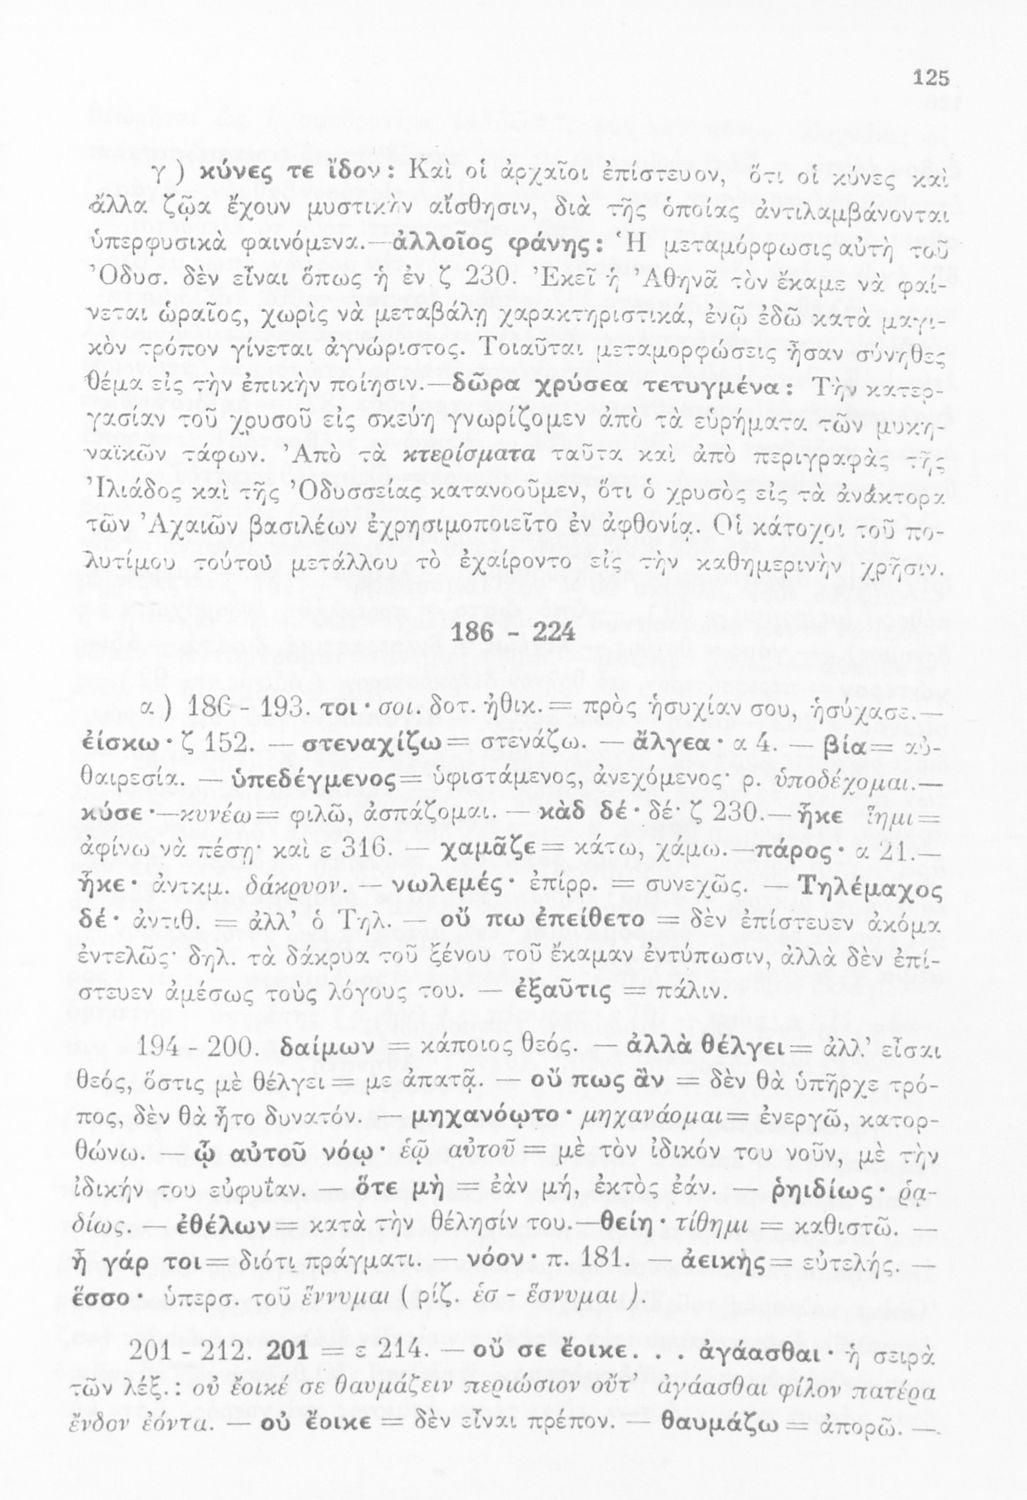 125
γ ) κύνες τε ἴδον : Καὶ οἱ ἀρχαῖοι ἐπίστευον, ὅτι οἱ κύνες καὶ
ἄλλα ζῷα ἔχουν μυστικὴν αἴσθησιν, διὰ τῆς ὁποίας ἀντιλαμβάνονται
ὑπερφυσικὰ φαινόμενα.— ἀλλοῖος φάνης : Ἡ μεταμόρφωσις αὐτὴ τοῦ
Ὀδυσ. δὲν εἶναι ὅπως ἡ ἐν ζ 230. Ἐκεῖ ἡ Ἀθηνᾶ τὸν ἔκαμε νὰ φαί-
νεται ὡραῖος, χωρὶς νὰ μεταβάλῃ χαρακτηριστικά, ἐνῷ ἐδῶ κατὰ μαγι-
κὸν τρόπον γίνεται ἀγνώριστος. Τοιαῦται μεταμορφώσεις ἦσαν σύνηθες
θέμα εἰς τὴν ἐπικὴν ποίησιν.— δῶρα χρύσεα τετυγμένα : Τὴν κατερ-
γασίαν τοῦ χρυσοῦ εἰς σκεύη γνωρίζομεν ἀπὸ τὰ εὑρήματα τῶν μυκη-
ναϊκῶν τάφων. Ἀπὸ τὰ κτερίσματα ταῦτα καὶ ἀπὸ περιγραφὰς τῆς
Ἰλιάδος καὶ τῆς Ὀδυσσείας κατανοοῦμεν, ὅτι ὁ χρυσὸς εἰς τὰ ἀνάκτορα
τῶν Ἀχαιῶν βασιλέων ἐχρησιμοποιεῖτο ἐν ἀφθονίᾳ. Οἱ κάτοχοι τοῦ πο-
λυτίμου τούτου μετάλλου τὸ ἐχαίροντο εἰς τὴν καθημερινὴν χρῆσιν.
186 - 224
α ) 186 - 193. τοι · σοι. δοτ. ἠθικ. = πρὸς ἡσυχίαν σου, ἡσύχασε.—
ἐίσκω · ζ 152. — στεναχίζω = στενάζω. — ἄλγεα · α 4. — βία = αὐ-
θαιρεσία. — ὑπεδέγμενος = ὑφιστάμενος, ἀνεχόμενος· ρ. ὑποδέχομαι.—
κύσε ·—κυνέω = φιλῶ, ἀσπάζομαι. — κὰδ δέ · δέ· ζ 230.— ἧκε ἵημι =
ἀφίνω νὰ πέσῃ· καὶ ε 316. — χαμᾶζε = κάτω, χάμω.—πάρος · α 21.—
ἧκε · ἀντκμ. δάκρυον. — νωλεμές · ἐπίρρ. = συνεχῶς. — Τηλέμαχος
δέ · ἀντιθ. = ἀλλ’ ὁ Τηλ. — οὔ πω ἐπείθετο = δὲν ἐπίστευεν ἀκόμα
ἐντελῶς· δηλ. τὰ δάκρυα τοῦ ξένου τοῦ ἔκαμαν ἐντύπωσιν, ἀλλὰ δὲν ἐπί-
στευεν ἀμέσως τοὺς λόγους του. — ἐξαῦτις = πάλιν.
194 - 200. δαίμων = κάποιος θεός. — ἀλλὰ θέλγει = ἀλλ’ εἶσαι
θεός, ὅστις μὲ θέλγει = με ἀπατᾷ. — οὔ πως ἂν = δὲν θὰ ὑπῆρχε τρό-
πος, δὲν θὰ ἦτο δυνατόν. — μηχανόῳτο · μηχανάομαι = ἐνεργῶ, κατορ-
θώνω. — ᾧ αὐτοῦ νόῳ · ἑῷ αὐτοῦ = μὲ τὸν ἰδικόν του νοῦν, μὲ τὴν
ἰδικήν του εὐφυΐαν. — ὅτε μὴ = ἐὰν μή, ἐκτὸς ἐάν. — ῥηιδίως · ῥᾳ-
δίως. — ἐθέλων = κατὰ τὴν θέλησίν του.—θείη · τίθημι = καθιστῶ. —
ἦ γάρ τοι = διότι πράγματι. — νόον · π. 181. — ἀεικὴς = εὐτελής. —
ἕσσο · ὑπερσ. τοῦ ἕννυμαι ( ρίζ. ἑσ - ἕσνυμαι ).
201 - 212. 201 = ε 214. — οὔ σε ἔοικε. . . ἀγάασθαι · ἡ σειρὰ
τῶν λέξ. : οὐ ἔοικέ σε θαυμάζειν περιώσιον οὔτ’ ἀγάασθαι φίλον πατέρα
ἔνδον ἐόντα. — οὐ ἔοικε = δὲν εἶναι πρέπον. — θαυμάζω = ἀπορῶ. —